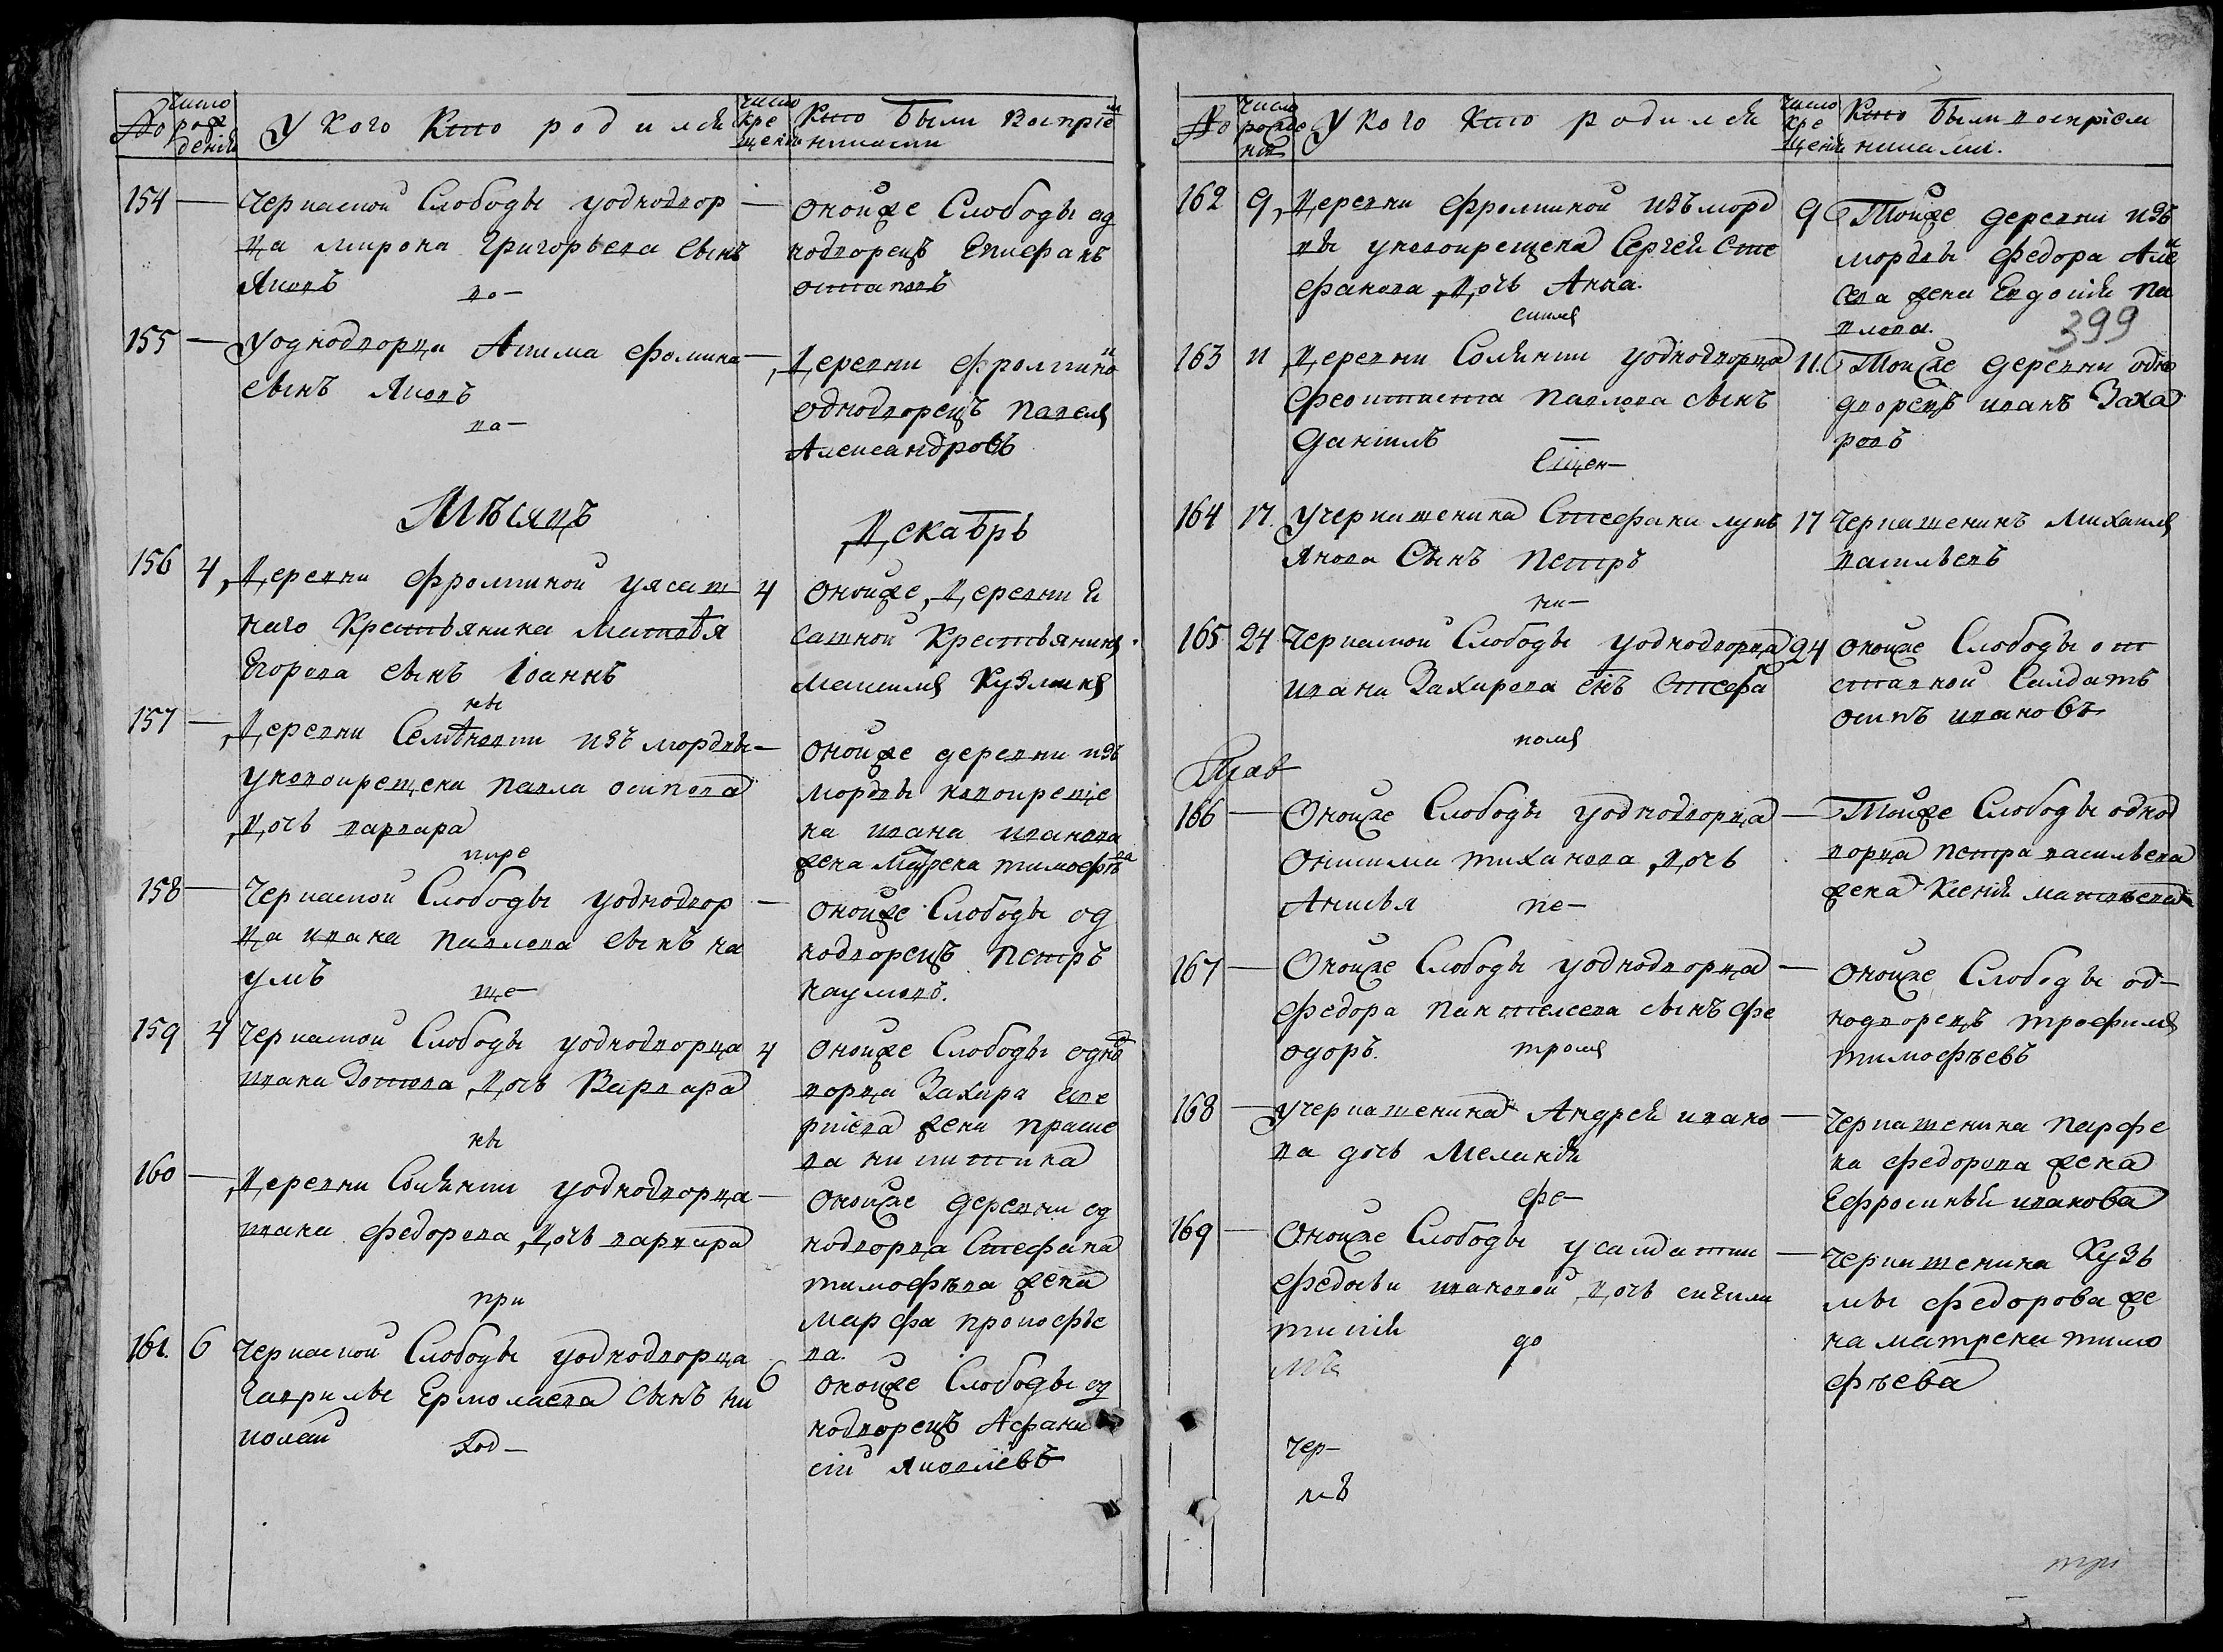 No
число
рож
дения
У кого Кто родился
число
кре
щения
Кто были воспрiем
никами
154 — Черкаской Слободы уоднодвор —
ца мирона Григорьева сынъ
Яковъ
во —
оной же Слободы од
нодворецъ Епифанъ
остаповъ
155 — Уоднодворца Акима фомина —
сынъ Яковъ
ва —
Деревни фролкиной
однодворецъ павелъ
Александровъ
Мѣсяцъ Декабрь
156 4 Деревни фролкиной уясаш 4
наго Крестьянина Матвѣя
Егорова сынъ Iоаннъ
ны
оной же Деревни я
сашной Крестьянинъ
максимъ Кузминъ
157 — Деревни изъ мордвы —
уновокрещена павла осипова
Дочь варвара
оной же деревни изъ
мордвы новокреще
на ивана иванова
жена Матрена тимофѣва
158 — Черкаской Слободы уоднодвор —
ца ивана павлова сынъ на
умъ
ще —
оной же Слободы од
нодворецъ петръ
наумовъ.
159 4 Черкаской Слободы уоднодворца 4
ивана Зотова Дочь Варвара
ны
оной же Слободы однод
ворца Захара
жена праско
ва никитина
160 — Деревни уоднодворца —
ивана федорова Дочь варвара
при
оной же деревни од
нодворца Стефана
тимофѣва жена
марфа прокофье
ва.
161. 6 Черкаской Слободы уоднодворца 6
Гаврилы Ермолаева сынъ ни
колай
ход —
оной же Слободы од
нодворецъ Афана
сiй Яковлевъ
No
число
рожде
нiя
У кого кто родился
число
кре
щенiя
Кто были воспрiем
никами.
162 9 Деревни фролкиной изъ морд 9
вы уновокрещена Сергея Сте
фанова Дочь Анна.
Тойже деревни изъ
мордвы федора Алек
сева жена Евдокия па
влова.
399
163 11 Деревни уоднодворца 11.
феоктиста павлова сынъ
данiилъ
Тойже деревни одно
дворецъ иванъ Заха
ровъ
164 17. Учеркашенина Стефана лукь 17
янова Сынъ петръ
ни —
Черкашенинъ Михаилъ
васильевъ
165 24 Черкаской Слободы уоднодворца 24
ивана Захарова снъ Стефан
оной же Слободы от
ставной Салдатъ
осипъ ивановъ
166 — Оной же Слободы уоднодворца —
Онисима тиханова Дочь
Анисья
пе —
Тойже Слободы однод
ворца петра васильева
жена Ксенiя матвѣева
167 — Оной же Слободы уоднодворца —
федора пантелеева сынъ фе
одоръ.
оной же Слободы од —
нодворецъ трофимъ
тимофѣевъ
168 — Учеркашенина Андрея ивано —
ва дочь Меланiя
фе —
Черкашенина парфе
на федорова жена
Ефросинья иванова
169 — Оной же Слободы усалдатки —
федосьи ивановой Дочь
до
Черкашенина Кузь
мы федорова же
на матрена тимо
фѣева
чер —
три